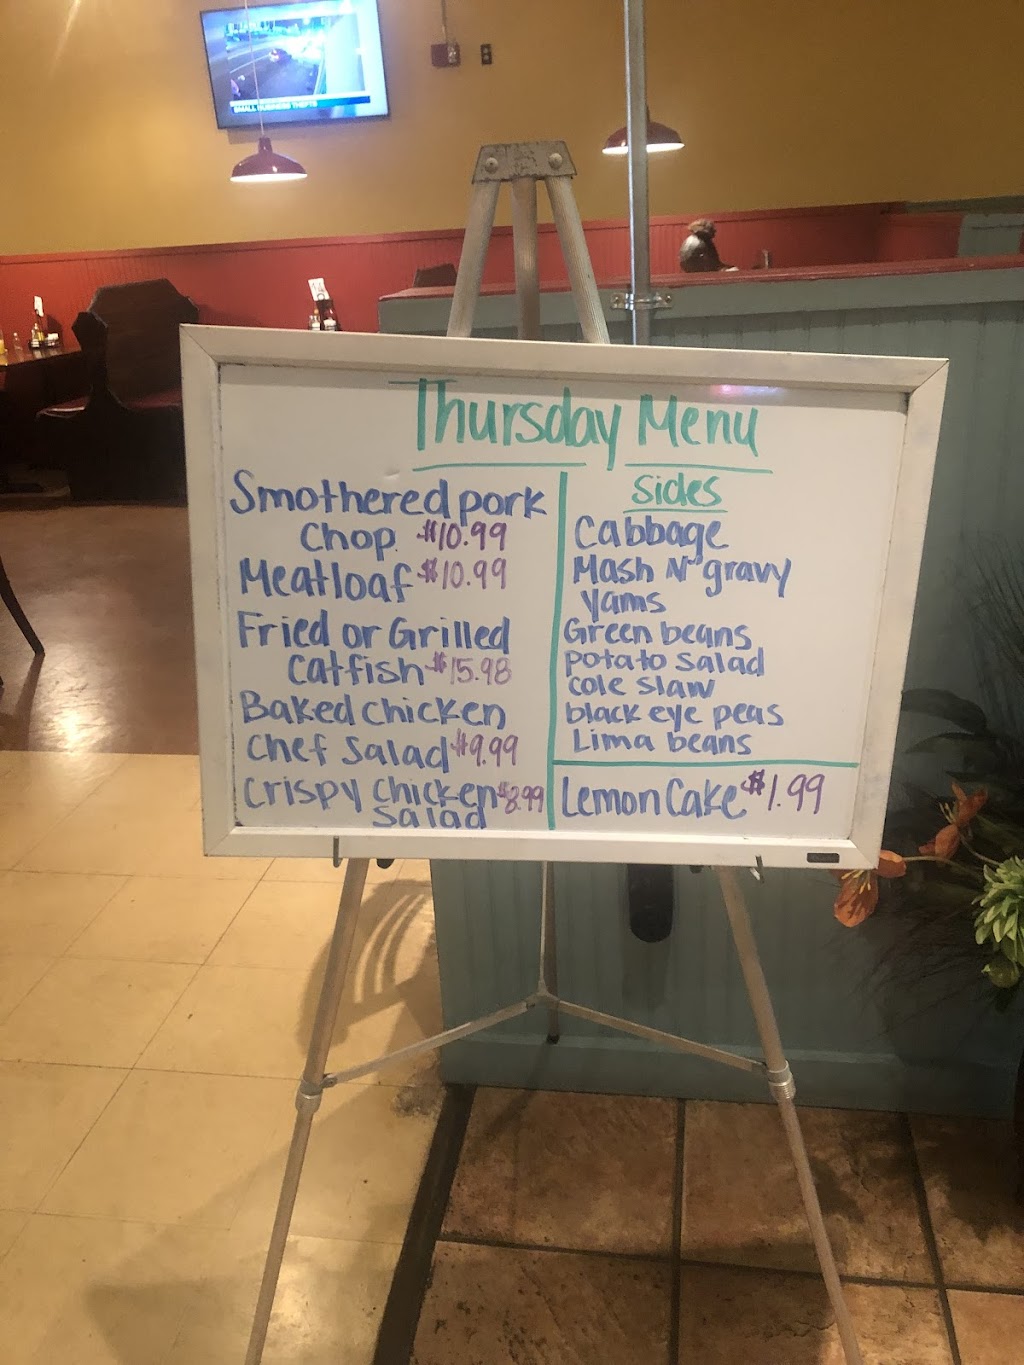 SMALL BUSINESS THEFTS
Thursday Menu
Smothered pork
Chop $10.99
Meatloaf $10.99
Fried or Grilled
Catfish $15.98
Baked chicken
Chef Salad $9.99
Crispy chicken $8.99
salad
Sides
Cabbage
Mash N' gravy
Yams
Green beans
potato salad
cole slaw
black eye peas
Lima beans
Lemon Cake $1.99